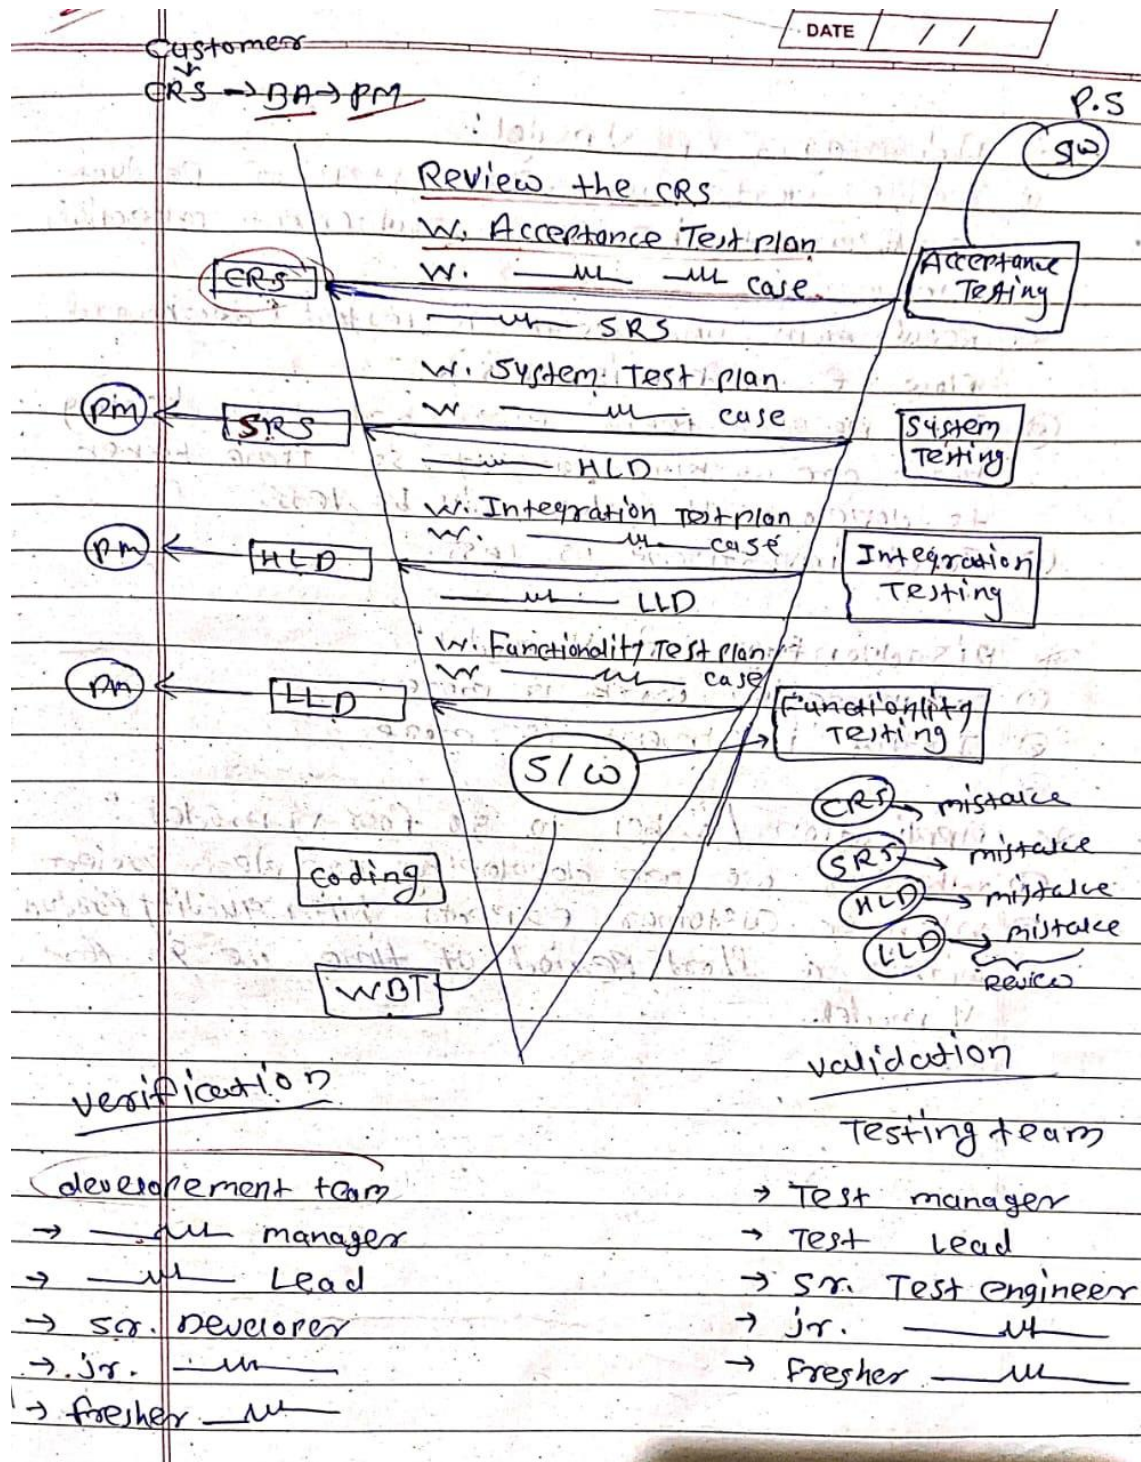 DATE / /
Customer
CRS → BA → PM
P.S
S/W
Review the CRS
W. Acceptance Test plan
W. —〃— —〃— case
CRS
Acceptance
Testing
—〃— SRS
W. System Test plan
W —〃— case
pm
SRS
System
Testing
—〃— HLD
W. Integration Test plan
W. —〃— case
pm
HLD
Integration
Testing
—〃— LLD
W. Functionality Test plan
W —〃— case
pm
LLD
Functionlity
Testing
S/W
CRS → mistake
SRS → mistake
HLD → mistake
LLD → mistake
Review
coding
WBT
verification
validation
Testing team
developement team
→ —〃— manager
→ —〃— Lead
→ sr. Developer
→ jr. —〃—
→ fresher —〃—
→ Test manager
→ Test Lead
→ Sr. Test engineer
→ jr. —〃—
→ Fresher —〃—